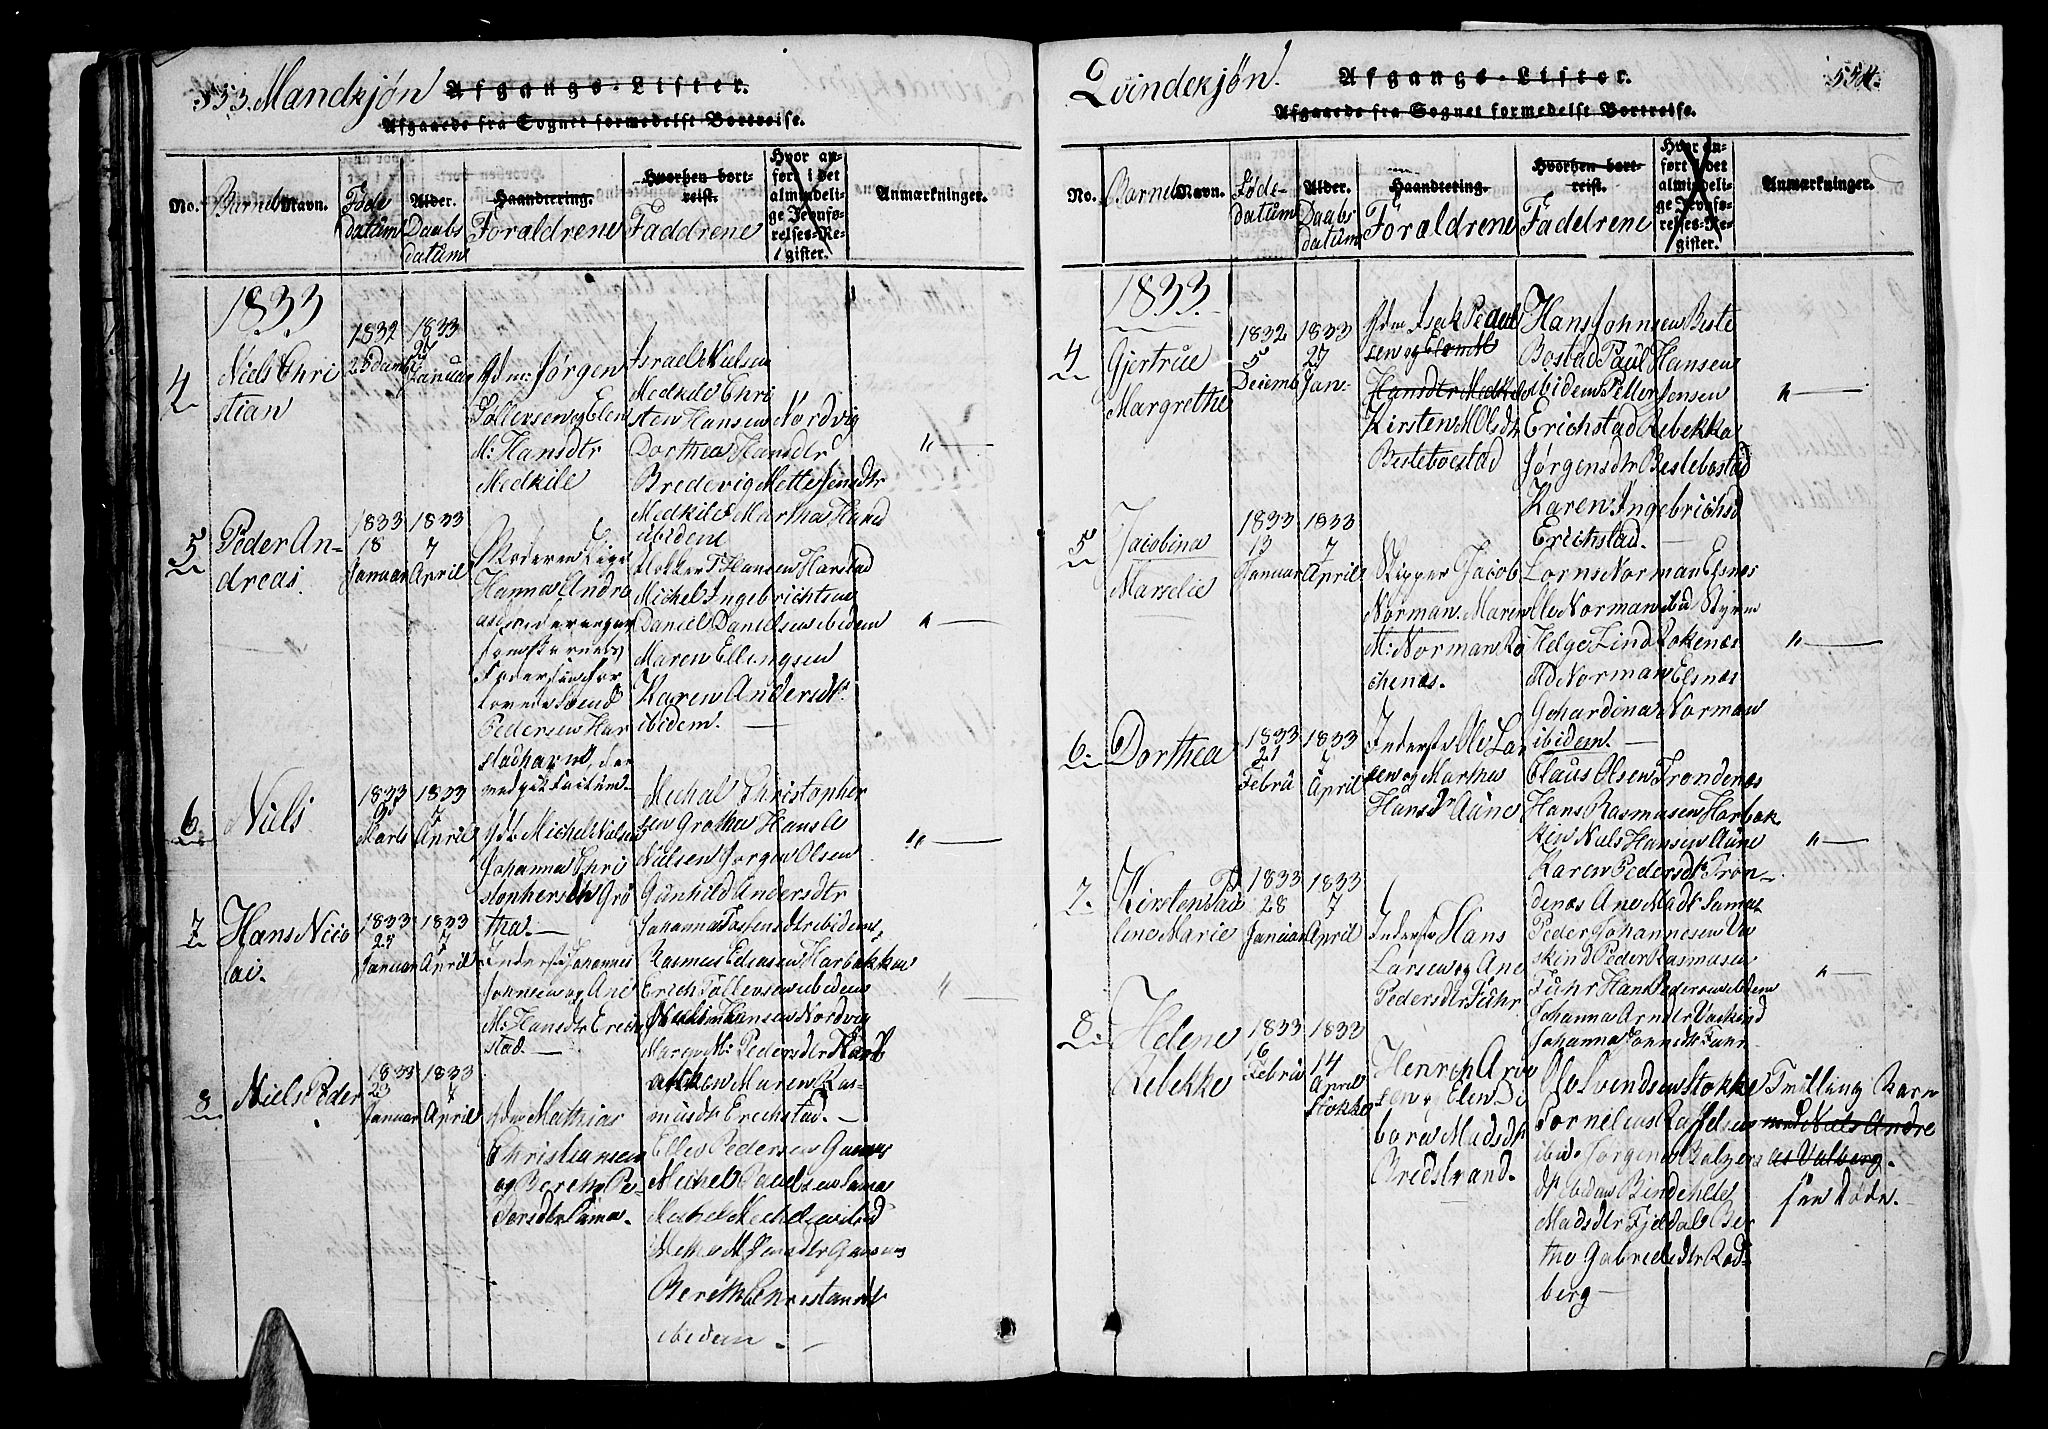 553. Mandkjøn Afgangs-Lister.
Afgaaede fra Sognet formedelst Bortreise.
No. Barnets Navn. Føde datum Alder. Daabs datum Haandtering. Forældrene Hvorhen bortreist. Faddrene Hvor anført i det almindelige Jevnførelses-Register. Anmærkninger.
1833
4
Niels Chri
stian
1832
28 Decemb
1833
27
Januar
Gdm: Jørgen
Tollevsen og Elen
M: Hansdtr
Medkile
Israel Nielsen
Medkile Chri
sten Hansen Nordvig
Dorthea Hansdtr
Bredevig Mette Jensdtr
Medkile Martha Hansd
ibidem
"
5
Peder An-
dreas.
1833
18
Januar
1833
7
April
Moderen Pige
Hanna Andre
Pedersen Har
stadhavn, der
Hansen Harstad
Michel Ingebrichtsen
Daniel Danielsen ibidem
Maren Ellingsen
Karen Andersdtr
ibidem.
"
6
Niels
1833
Marts
1833
7
April
Michel Nielsen
Johanna Chri
stophersdtr Grø
tha.
Mechal Christopher
sen Grøtha Hans L
Nielsen Jørgen Olsen
Gunhild Andersdtr
Johanna Tostensdtr ibidem
"
7
Hans Nico
lai.
1833
25
Januar
1833
7
April
Inderst Johannes
Johnsen og Ane
M: Hansdtr Erich
stad.
Rasmus Edensen Harbakken
Erich Tollevsen ibidem
Hansen Nordvig
Maren M: Pedersdtr Harb
akken Maren Ras-
musdtr Erichstad.
"
8
Niels Peder
1833
23
Januar
1833
7
April
Gdm Mathias
Christiansen
og Bereth Pe-
dersdtr Sama.
Elles Pedersen Gansaas
Michel Poulsen Sama
Michel Michelsen ibid
Mette M Jensdtr Gansaas
Bereth Christiansdtr
ibidem.
Qvindekjøn. Afgangs-Lister. 554.
Afgaaede fra Sognet formedelst Bortreise.
No. Barnets Navn. Føde-datum Alder. Daabs datum Haandtering. Forældrene Hvorhen bortreist. Faddrene Hvor anført i det almindelige Jevnførelses-Register. Anmærkninger.
1833.
4
Gjertrue
Margrethe
1832
5
Decemb
1833
27
Jan-
Gdm Isak Peder
sen og Elen M
Hansdtr Medkile
Kirsten M Olsdtr
Besteboestad
Hans Johnsen Beste
Bostad Paul Hansen
ibidem Peller Jensen
Erichstad Rebekka
Jørgensdtr Bestebostad
Karen Ingebrichtsd
Erichstad.
"
5
Jacobina
Marselie
1833
13
Januar
1833
7
April
Skipper Jacob
Norman Maren
M: Norman Ro
chenæs.
Lorns Norman Elsnæs
Ole Norman ibid Styrm
Helge Lind Rokenæs
Norman Elsnæs
Gohardina Norman
ibidem.
"
6.
Dorthea
1833
21
Febru
1833
7
April
Inderst Ole Lar
sen og Martha
Hansdtr Aune
Claus Olsen Trondenæs
Hans Rasmusen Harbak
ken Niels Hansen Aune
Karen Pedersdtr Tron-
denæs Ane Madtr Samat
"
7.
Kirsten Pau
line Marie
1833
28
Januar
1833
7
April
Inderst Hans
Larsen og Ane
Pedersdtr Fuhr.
Peder Johannesen Va
skind Peder Rasmusen
Fuhr Hans Pedersen ibidem
Johanna Arndtr Vaskind
Johanna Jonnsdtr Fuhr
"
8.
Helene
Rebekke
1833
16
Febru
1833
14
April
Stokke
Henrich Arn
sen og Elen De
bora Madsdtr
Bredstrand.
Ole Svendsen Stokke
Cornelius Raffelsen
ibid. Jørgena Balzers
dtr ibidem Bindekke
Madsdtr Fjeldal Ber
the Gabrielsdtr Rød-
berg
Tvilling Barn
med Niels Andre
as Valberg.